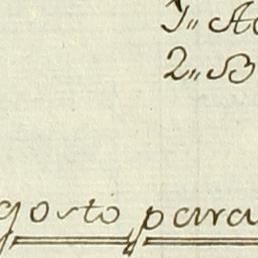 1,, A
2,, B
gosto para